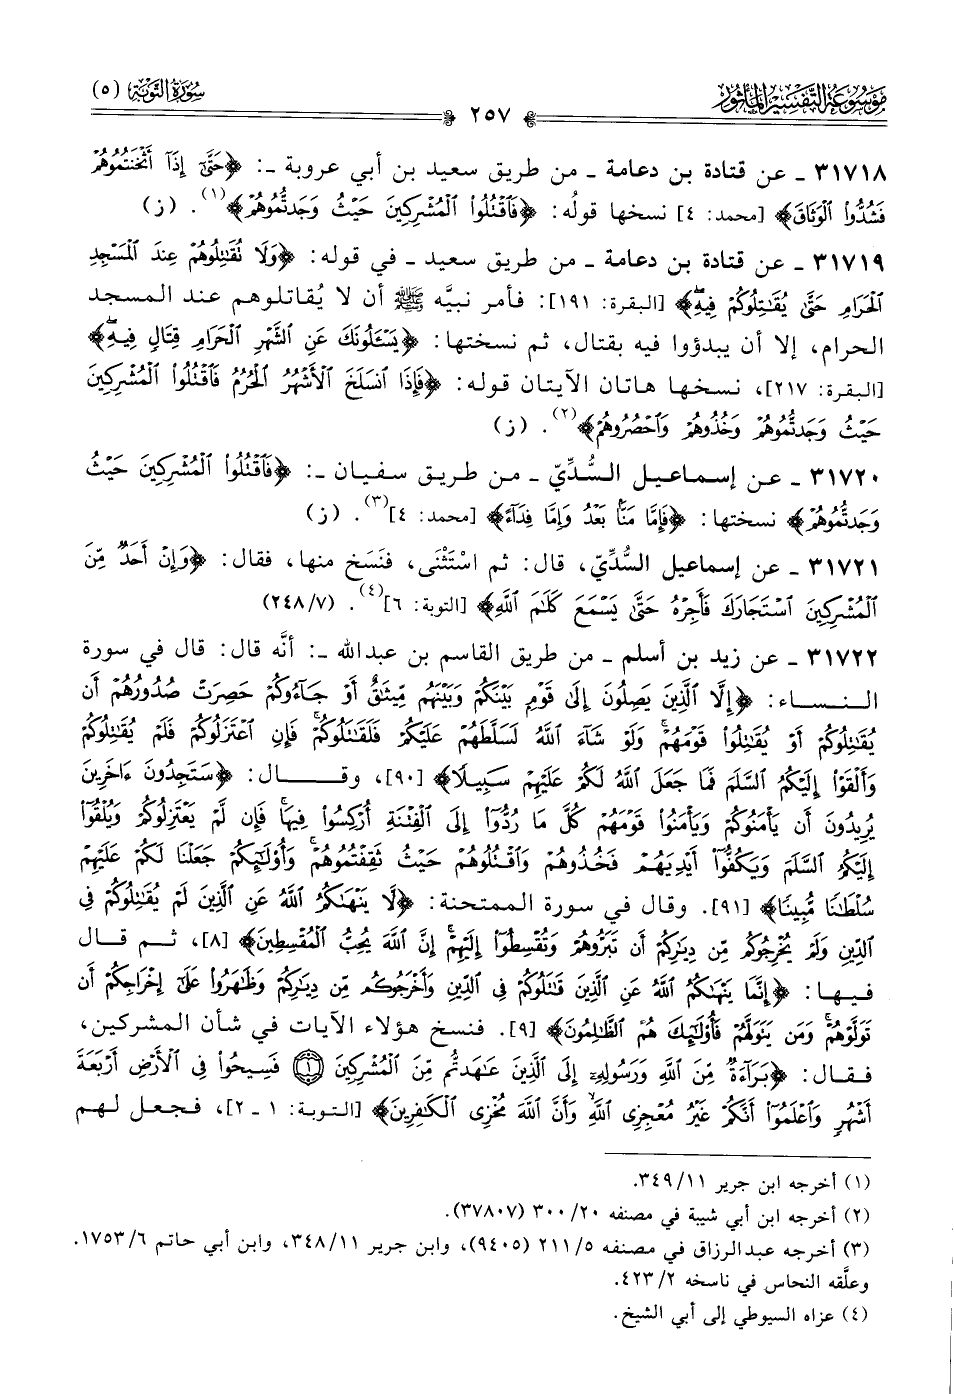 مَوْسُوعَة التَّفْسِيرِ المَأثُور
٢٥٧
سُورَةُ التَّوْبَة (٥)
٣١٧١٨ ـ عن قتادة بن دعامة ـ من طريق سعيد بن أبي عروبة ـ: ﴿حَتَّىٰٓ إِذَآ أَثۡخَنتُمُوهُمۡ
فَشُدُّواْ ٱلۡوَثَاقَ﴾ [محمد: ٤] نسخها قولُه: ﴿فَٱقۡتُلُواْ ٱلۡمُشۡرِكِينَ حَيۡثُ وَجَدتُّمُوهُمۡ﴾(١). (ز)
٣١٧١٩ ـ عن قتادة بن دعامة ـ من طريق سعيد ـ في قوله: ﴿وَلَا تُقَٰتِلُوهُمۡ عِندَ ٱلۡمَسۡجِدِ
ٱلۡحَرَامِ حَتَّىٰ يُقَٰتِلُوكُمۡ فِيهِۖ﴾ [البقرة: ١٩١]: فأمر نبيَّه ﷺ أن لا يُقاتلوهم عند المسجد
الحرام، إلا أن يبدؤوا فيه بقتال، ثم نسختها: ﴿يَسۡـَٔلُونَكَ عَنِ ٱلشَّهۡرِ ٱلۡحَرَامِ قِتَالٖ فِيهِۖ﴾
[البقرة: ٢١٧]، نسخها هاتان الآيتان قوله: ﴿فَإِذَا ٱنسَلَخَ ٱلۡأَشۡهُرُ ٱلۡحُرُمُ فَٱقۡتُلُواْ ٱلۡمُشۡرِكِينَ
حَيۡثُ وَجَدتُّمُوهُمۡ وَخُذُوهُمۡ وَٱحۡصُرُوهُمۡ﴾(٢). (ز)
٣١٧٢٠ ـ عن إسماعيل السُّدِّيّ ـ من طريق سفيان ـ: ﴿فَٱقۡتُلُواْ ٱلۡمُشۡرِكِينَ حَيۡثُ
وَجَدتُّمُوهُمۡ﴾ نسختها: ﴿فَإِمَّا مَنَّۢا بَعۡدُ وَإِمَّا فِدَآءً﴾ [محمد: ٤](٣). (ز)
٣١٧٢١ ـ عن إسماعيل السُّدِّيّ، قال: ثم اسْتَثْنَى، فنَسَخ منها، فقال: ﴿وَإِنۡ أَحَدٞ مِّنَ
ٱلۡمُشۡرِكِينَ ٱسۡتَجَارَكَ فَأَجِرۡهُ حَتَّىٰ يَسۡمَعَ كَلَٰمَ ٱللَّهِ﴾ [التوبة: ٦](٤). (٢٤٨/٧)
٣١٧٢٢ ـ عن زيد بن أسلم ـ من طريق القاسم بن عبدالله ـ: أنَّه قال: قال في سورة
النساء: ﴿إِلَّا ٱلَّذِينَ يَصِلُونَ إِلَىٰ قَوۡمِۭ بَيۡنَكُمۡ وَبَيۡنَهُم مِّيثَٰقٌ أَوۡ جَآءُوكُمۡ حَصِرَتۡ صُدُورُهُمۡ أَن
يُقَٰتِلُوكُمۡ أَوۡ يُقَٰتِلُواْ قَوۡمَهُمۡۚ وَلَوۡ شَآءَ ٱللَّهُ لَسَلَّطَهُمۡ عَلَيۡكُمۡ فَلَقَٰتَلُوكُمۡۚ فَإِنِ ٱعۡتَزَلُوكُمۡ فَلَمۡ يُقَٰتِلُوكُمۡ
وَأَلۡقَوۡاْ إِلَيۡكُمُ ٱلسَّلَمَ فَمَا جَعَلَ ٱللَّهُ لَكُمۡ عَلَيۡهِمۡ سَبِيلٗا﴾ [٩٠]، وقال: ﴿سَتَجِدُونَ ءَاخَرِينَ
يُرِيدُونَ أَن يَأۡمَنُوكُمۡ وَيَأۡمَنُواْ قَوۡمَهُمۡ كُلَّ مَا رُدُّوٓاْ إِلَى ٱلۡفِتۡنَةِ أُرۡكِسُواْ فِيهَاۚ فَإِن لَّمۡ يَعۡتَزِلُوكُمۡ وَيُلۡقُوٓاْ
إِلَيۡكُمُ ٱلسَّلَمَ وَيَكُفُّوٓاْ أَيۡدِيَهُمۡ فَخُذُوهُمۡ وَٱقۡتُلُوهُمۡ حَيۡثُ ثَقِفۡتُمُوهُمۡۚ وَأُوْلَٰٓئِكُمۡ جَعَلۡنَا لَكُمۡ عَلَيۡهِمۡ
سُلۡطَٰنٗا مُّبِينٗا﴾ [٩١]. وقال في سورة الممتحنة: ﴿لَّا يَنۡهَىٰكُمُ ٱللَّهُ عَنِ ٱلَّذِينَ لَمۡ يُقَٰتِلُوكُمۡ فِي
ٱلدِّينِ وَلَمۡ يُخۡرِجُوكُم مِّن دِيَٰرِكُمۡ أَن تَبَرُّوهُمۡ وَتُقۡسِطُوٓاْ إِلَيۡهِمۡۚ إِنَّ ٱللَّهَ يُحِبُّ ٱلۡمُقۡسِطِينَ﴾ [٨]، ثم قال
فيها: ﴿إِنَّمَا يَنۡهَىٰكُمُ ٱللَّهُ عَنِ ٱلَّذِينَ قَٰتَلُوكُمۡ فِي ٱلدِّينِ وَأَخۡرَجُوكُم مِّن دِيَٰرِكُمۡ وَظَٰهَرُواْ عَلَىٰٓ إِخۡرَاجِكُمۡ أَن
تَوَلَّوۡهُمۡۚ وَمَن يَتَوَلَّهُمۡ فَأُوْلَٰٓئِكَ هُمُ ٱلظَّٰلِمُونَ﴾ [٩]. فنسخ هؤلاء الآيات في شأن المشركين،
فقال: ﴿بَرَآءَةٞ مِّنَ ٱللَّهِ وَرَسُولِهِۦٓ إِلَى ٱلَّذِينَ عَٰهَدتُّم مِّنَ ٱلۡمُشۡرِكِينَ ١ فَسِيحُواْ فِي ٱلۡأَرۡضِ أَرۡبَعَةَ
أَشۡهُرٖ وَٱعۡلَمُوٓاْ أَنَّكُمۡ غَيۡرُ مُعۡجِزِي ٱللَّهِ وَأَنَّ ٱللَّهَ مُخۡزِي ٱلۡكَٰفِرِينَ﴾ [التوبة: ١ ـ ٢]، فجعل لهم
(١) أخرجه ابن جرير ٣٤٩/١١.
(٢) أخرجه ابن أبي شيبة في مصنفه ٣٠٠/٢٠ (٣٧٨٠٧).
(٣) أخرجه عبدالرزاق في مصنفه ٢١١/٥ (٩٤٠٥)، وابن جرير ٣٤٨/١١، وابن أبي حاتم ١٧٥٣/٦.
وعلَّقه النحاس في ناسخه ٤٢٣/٢.
(٤) عزاه السيوطي إلى أبي الشيخ.